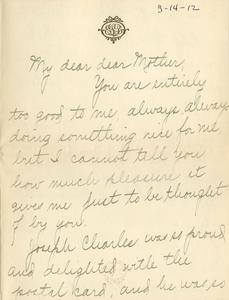 3-14-12
My dear dear Mother,
You are entirely
too good to me, always, always
doing something nice for me,
but I cannot tell you
how much pleasure it
gives me just to be thought
of by you.
Joseph Charles was so proud
and delighted with the
postal card, and he was so